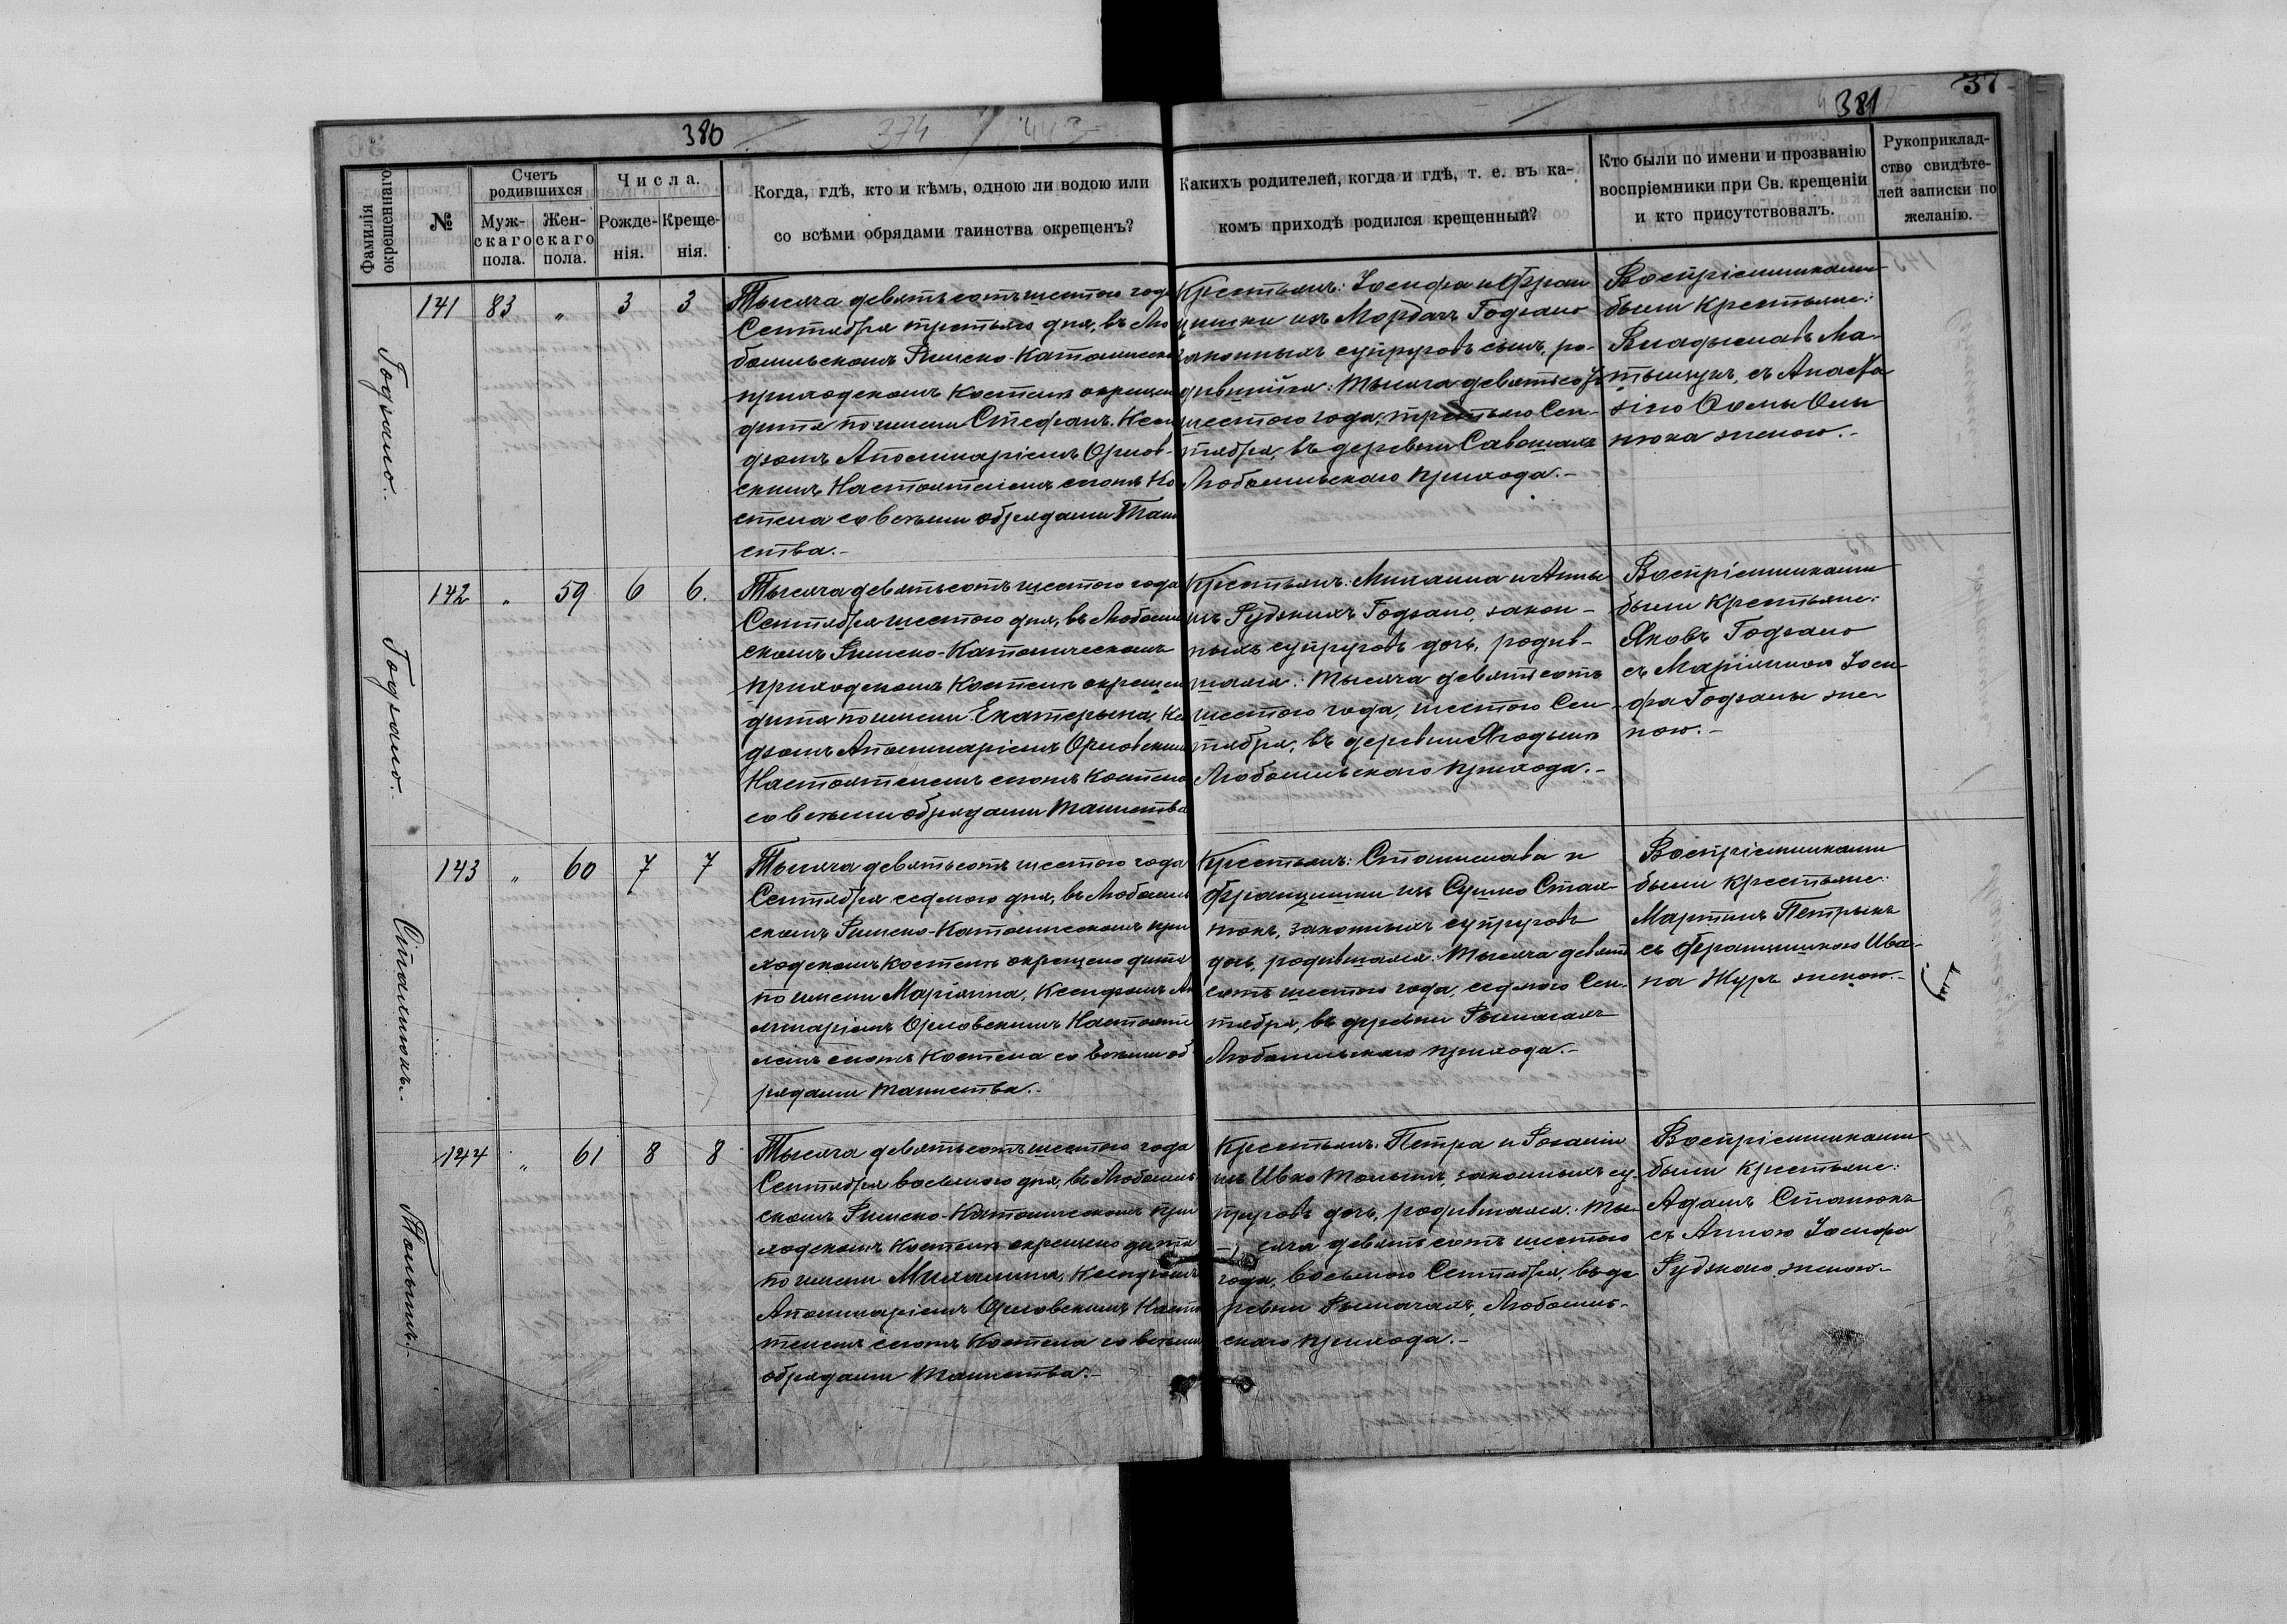 380
374
443
381
37
Фамилія окрещеннаго
№
Счетъ родившихся
Мужскаго пола.
Женскаго пола.
Числа.
Рожденія.
Крещенія.
Когда, гдѣ, кто и кѣмъ, одною ли водою или
со всѣми обрядами таинства окрещенъ?
Какихъ родителей, когда и гдѣ, т. е. въ ка-
комъ приходѣ родился крещенный?
Кто были по имени и прозванію
воспріемники при Св. крещеніи
и кто присутствовалъ.
Рукоприклад-
ство свидѣте-
лей записки по
желанію.
Годзало.
141 83 „ 3 3
Тысяча девятьсотъ шестого года
Сентября третьяго дня, въ Лю
бомльскомъ Римско-Католическ
приходскомъ Костелѣ окрещен
дитя по имени Стефанъ. Ксен
дзомъ Аполинаріемъ Орлов-
скимъ Настоятелемъ сего Ко
стела со всѣми обрядами Таин
ства.-
Крестьянъ: Іосифа и Фран
цишки изъ Мордачъ Годзало
законныхъ супруговъ сынъ, ро-
дившійся: Тысяча девятьсотъ
шестого года, третьяго Сен-
тября, въ деревни Савошахъ
Любомльскаго прихода.-
Воспріемниками
были Крестьяне:
Владыславъ Ма-
тыщукъ, съ Анаста
зіею Ѳомы Оли
нюка женою.-
Годзало.
142 „ 59 6 6.
Тысяча девятьсотъ шестого года
Сентября шестого дня, въ Любомль
скомъ Римско-Католическомъ
приходскомъ Костелѣ окрещен
дитя по имени Екатерына, Ксе
дзомъ Аполинаріемъ Орловским
Настоятелемъ сего Костела
со всѣми обрядами Таинства
Крестьянъ: Михаила и Анны
изъ Рудзкихъ Годзало, закон-
ныхъ супруговъ дочь, родив-
шаяся: Тысяча девятьсотъ
шестого года, шестого Сен-
тября, въ деревни Ягодынѣ
Любомльскаго прихода.-
Воспріемниками
были Крестьяне:
Яковъ Годзало
съ Маріянною Іоси
фа Годзалы же-
ною.-
143 „ 60 7 7
Тысяча девятьсотъ шестого года
Сентября седмого дня, въ Любомль
скомъ Римско-Католическомъ при
ходскомъ Костелѣ окрещено дитя
по имени Маріянна, Ксендзомъ Ап
линаріемъ Орловскимъ Настояте
лемъ сего Костела со всѣми об
рядами Таинства.-
Крестьянъ: Станислава и
Францишки изъ
законныхъ супруговъ
дочь, родившаяся: Тысяча девять
сотъ шестого года, седмого Сен-
тября, въ деревни Рымачахъ
Любомльскаго прихода.-
Воспріемниками
были Крестьяне:
Мартинъ Петрыкъ
съ Францишкою Ива-
на Журъ женою.-
Толынъ.
144 „ 61 8 8
Тысяча девятьсотъ шестого года
Сентября восьмого дня, въ Любомль
скомъ Римско-Католическомъ при
ходскомъ Костелѣ окрещено дитя
по имени Михалина, Ксендзомъ
Аполинаріемъ Орловскимъ Настоя
телемъ сего Костела со всѣми
обрядами Таинства.-
Крестьянъ: Петра и Розаліи
изъ Ивко Толынъ, законныхъ су-
пруговъ дочь, родившаяся: Ты-
сяча девятьсотъ шестого
года, восьмого Сентября, въ де
ревни Рымачахъ, Любомль-
скаго прихода.-
Воспріемниками
были Крестьяне:
Адамъ Станюкъ
съ Анною Іосифа
Рудзкаго женою-